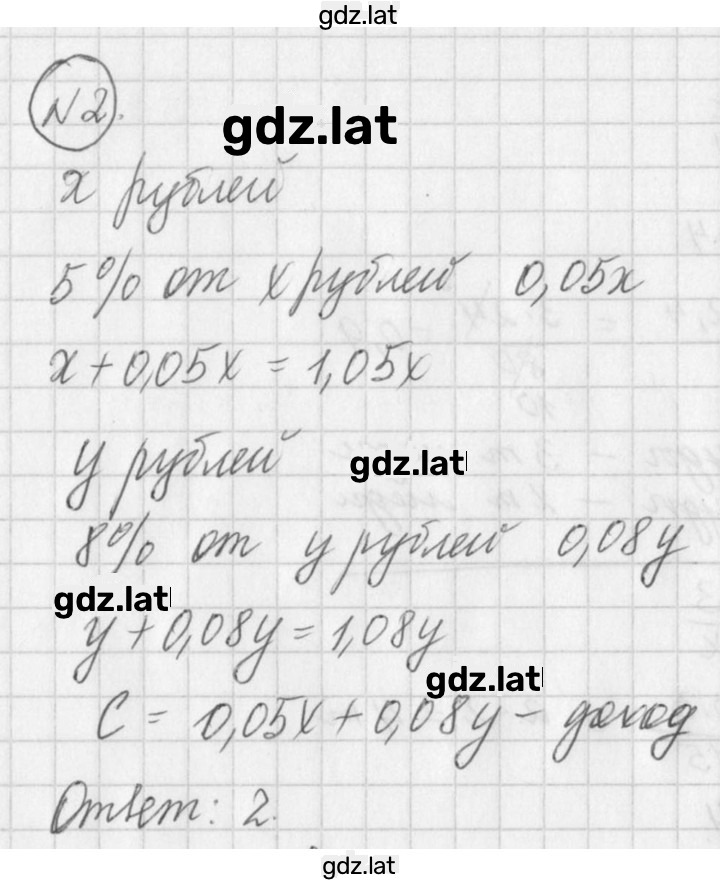 gdz.lat
№2.
gdz.lat
x рублей
5% от x рублей 0,05x
x + 0,05x = 1,05x
y рублей
gdz.lat
8% от y рублей 0,08y
gdz.lat
y + 0,08y = 1,08y
gdz.lat
C = 0,05x + 0,08y - доход
Ответ: 2.
gdz.lat